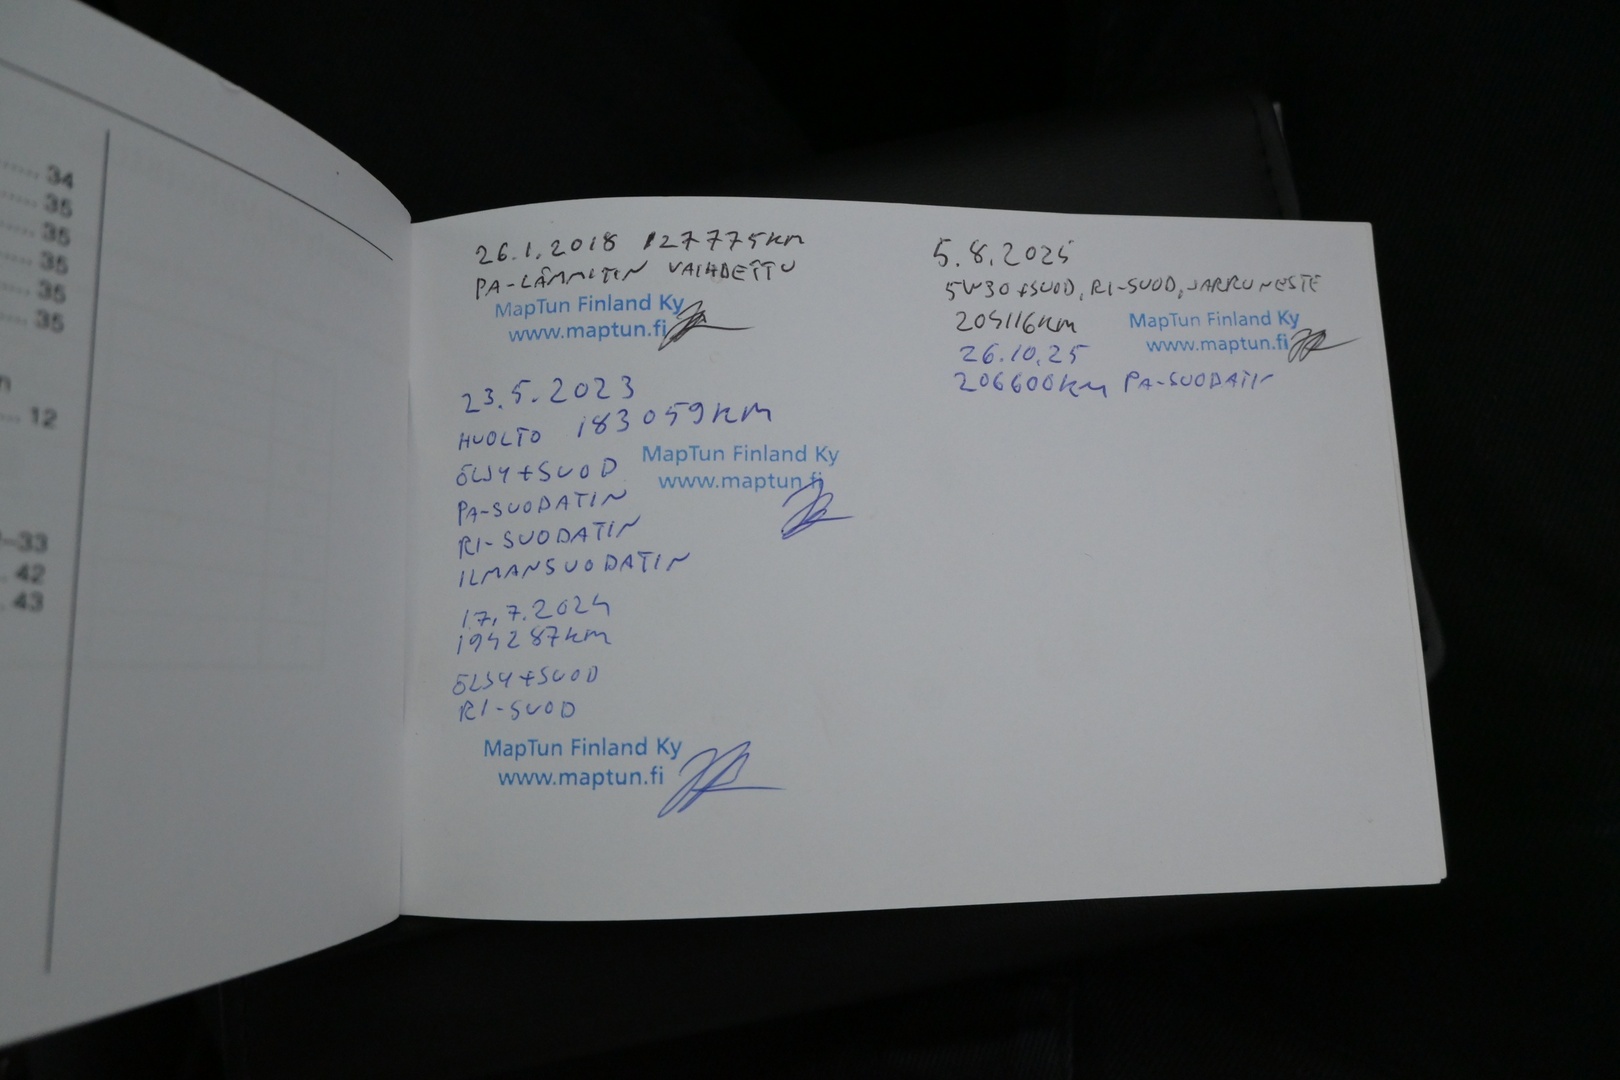 34
35
35
35
35
35
n
12
-33
42
43
26.1.2018 127775km
PA-LÄMMITIN VAIHDETTU
MapTun Finland Ky
www.maptun.fi
23.5.2023
HUOLTO 183059km
ÖLJY+SUOD
MapTun Finland Ky
www.maptun.fi
PA-SUODATIN
RI-SUODATIN
ILMANSUODATIN
17.7.2024
194287km
ÖLJY+SUOD
RI-SUOD
MapTun Finland Ky
www.maptun.fi
5.8.2025
5W30+SUOD, RI-SUOD, JARRUNESTE
204116km
MapTun Finland Ky
www.maptun.fi
26.10.25
206600km PA-SUODATIN